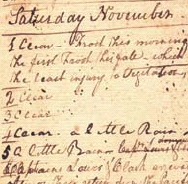 Saturday November
1 Clear Frost this morning
the first Frost this fall which
the least injury to Vegitation
2 Clear
3 Clear
4 Clear a little Rain
5 a little Rain
6 Captains Lewis & Clark